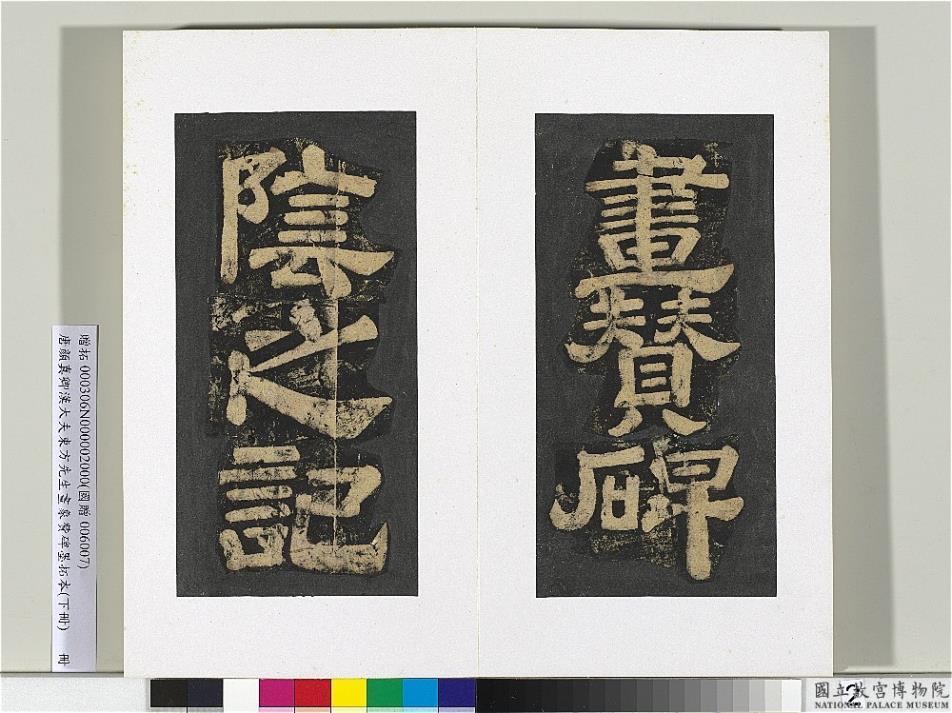 畫贊碑
陰之記
贈拓 000306N000002000(國贈 006007)
唐顏真卿漢大夫東方先生畫象贊碑墨拓本(下冊) 冊
2
國立故宮博物院
NATIONAL PALACE MUSEUM